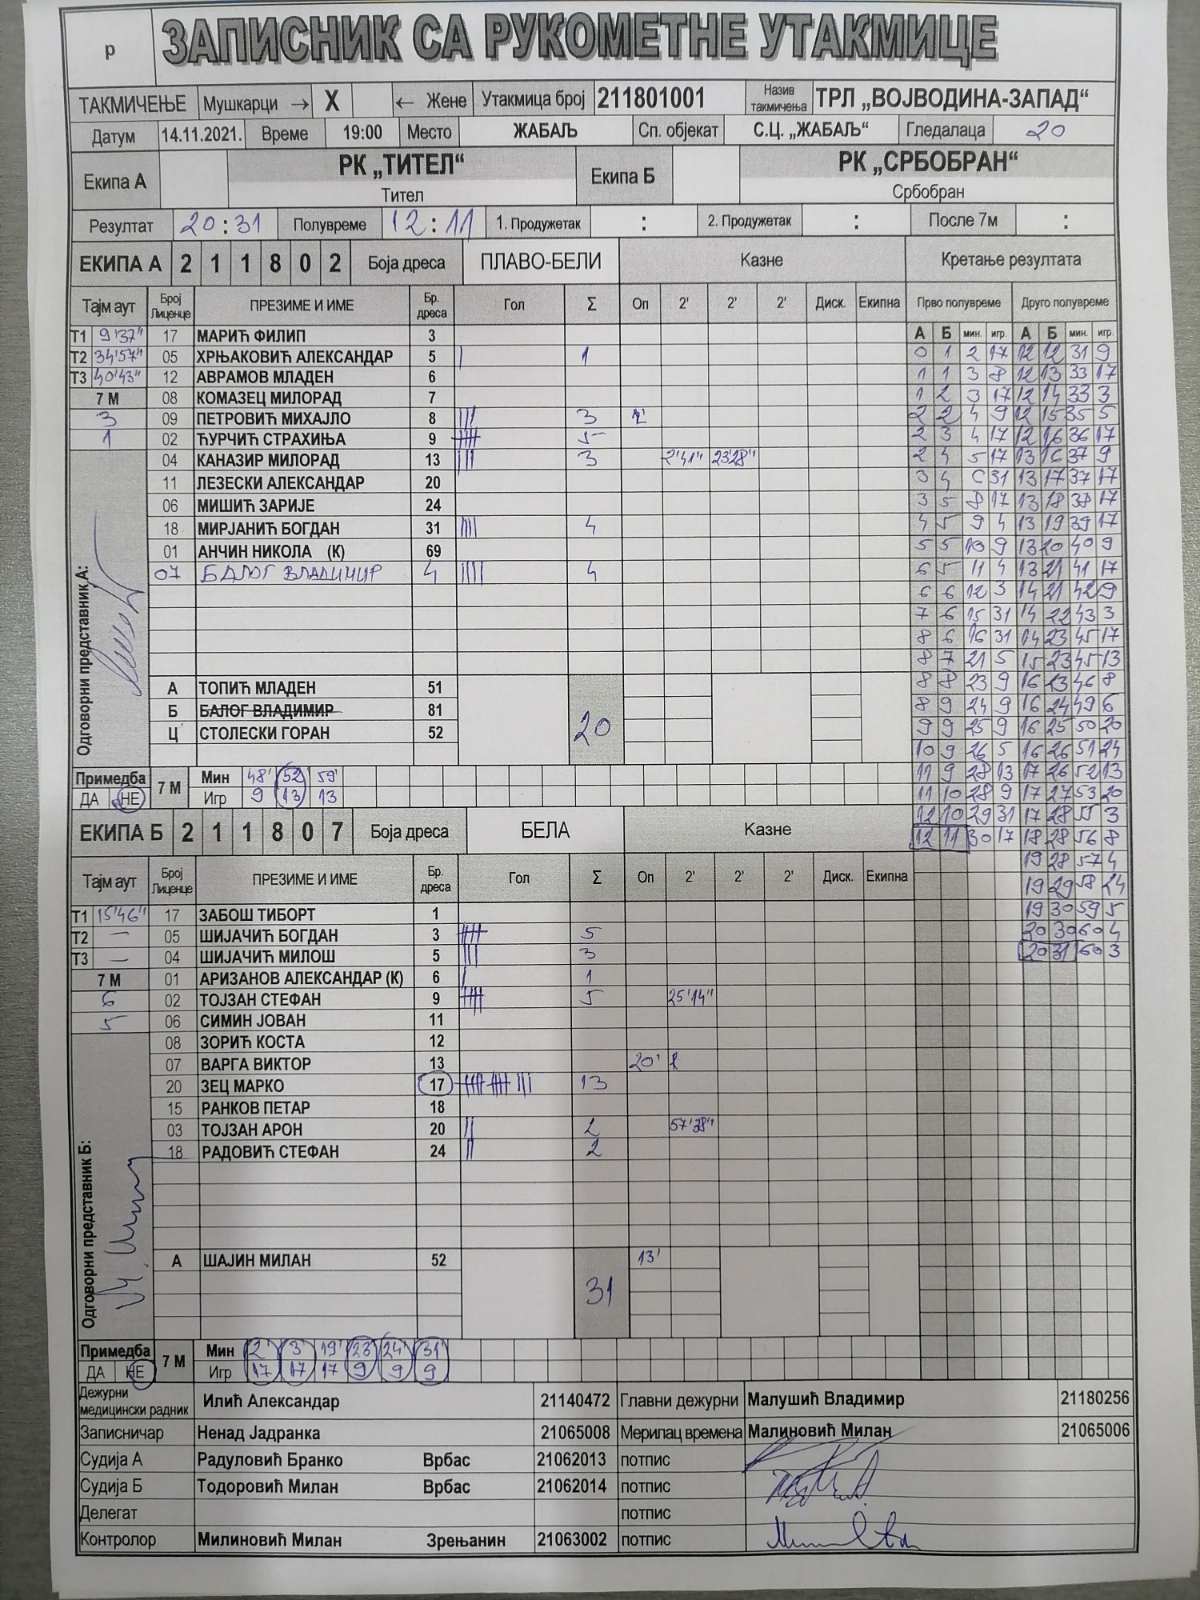 р ЗАПИСНИК СА РУКОМЕТНЕ УТАКМИЦЕ
ТАКМИЧЕЊЕ Мушкарци → X ← Жене Утакмица број 211801001 Назив такмичења ТРЛ „ВОЈВОДИНА-ЗАПАД“
Датум 14.11.2021. Време 19:00 Место ЖАБАЉ Сп. објекат С.Ц. „ЖАБАЉ“ Гледалаца 20
Екипа А РК „ТИТЕЛ“ Екипа Б РК „СРБОБРАН“
Тител Србобран
Резултат 20:31 Полувреме 12:11 1. Продужетак : 2. Продужетак : После 7м :
ЕКИПА А 2 1 1 8 0 2 Боја дреса ПЛАВО-БЕЛИ Казне Кретање резултата
Тајм аут Број Лиценце ПРЕЗИМЕ И ИМЕ Бр. дреса Гол Σ Оп 2' 2' 2' Диск. Екипна Прво полувреме Друго полувреме
Т1 9'37" 17 МАРИЋ ФИЛИП 3 А Б мин. игр. А Б мин. игр.
Т2 34'57" 05 ХРЊАКОВИЋ АЛЕКСАНДАР 5 | 1 0 1 2 17 12 12 31 9
Т3 40'43" 12 АВРАМОВ МЛАДЕН 6 1 1 3 8 12 13 33 17
7 М 08 КОМАЗЕЦ МИЛОРАД 7 1 2 3 17 12 14 33 3
3 09 ПЕТРОВИЋ МИХАЈЛО 8 ||| 3 2 2 4 9 12 15 35 5
1 02 ЋУРЧИЋ СТРАХИЊА 9 5 2 3 4 17 12 16 36 17
04 КАНАЗИР МИЛОРАД 13 ||| 3 2'41" 23'28" 2 4 5 17 13 16 37 9
11 ЛЕЗЕСКИ АЛЕКСАНДАР 20 3 4 31 13 17 37 17
06 МИШИЋ ЗАРИЈЕ 24 3 5 8 17 13 18 38 17
18 МИРЈАНИЋ БОГДАН 31 |||| 4 4 5 9 4 13 19 39 17
01 АНЧИН НИКОЛА (К) 69 5 5 10 9 13 20 40 9
07 БАЛОГ ВЛАДИМИР 4 |||| 4 6 5 11 4 13 21 41 17
6 6 12 3 14 21 42 9
7 6 15 31 14 22 43 3
8 6 16 31 14 23 45 17
Одговорни представник А:
8 7 21 5 15 23 45 13
А ТОПИЋ МЛАДЕН 51 8 8 23 9 16 23 46 8
Б БАЛОГ ВЛАДИМИР 81 20 8 9 24 9 16 24 49 6
Ц СТОЛЕСКИ ГОРАН 52 9 9 25 9 16 25 50 20
10 9 26 5 16 26 51 24
Примедба 7 М Мин 48' 52 59' 11 9 28 13 17 26 52 13
ДА НЕ Игр 9 13 13 11 10 28 9 17 27 53 20
12 10 29 31 17 28 55 3
ЕКИПА Б 2 1 1 8 0 7 Боја дреса БЕЛА Казне 12 11 30 17 18 28 56 8
19 28 57 4
Тајм аут Број Лиценце ПРЕЗИМЕ И ИМЕ Бр. дреса Гол Σ Оп 2' 2' 2' Диск. Екипна 19 29 58 24
Т1 15'46" 17 ЗАБОШ ТИБОРТ 1 19 30 59 5
Т2 — 05 ШИЈАЧИЋ БОГДАН 3 5 20 30 60 4
Т3 — 04 ШИЈАЧИЋ МИЛОШ 5 ||| 3 20 31 60 3
7 М 01 АРИЗАНОВ АЛЕКСАНДАР (К) 6 | 1
6 02 ТОЈЗАН СТЕФАН 9 5 25'14"
5 06 СИМИН ЈОВАН 11
08 ЗОРИЋ КОСТА 12
07 ВАРГА ВИКТОР 13 20'
20 ЗЕЦ МАРКО 17 13
15 РАНКОВ ПЕТАР 18
03 ТОЈЗАН АРОН 20 || 2 57'38"
18 РАДОВИЋ СТЕФАН 24 || 2
Одговорни представник Б:
А ШАЈИН МИЛАН 52 13'
31
Примедба 7 М Мин 2' 3' 19' 23' 24' 31'
ДА НЕ Игр 17 17 17 9 9 9
Дежурни медицински радник Илић Александар 21140472 Главни дежурни Малушић Владимир 21180256
Записничар Ненад Јадранка 21065008 Мерилац времена Малиновић Милан 21065006
Судија А Радуловић Бранко Врбас 21062013 потпис
Судија Б Тодоровић Милан Врбас 21062014 потпис
Делегат потпис
Контролор Милиновић Милан Зрењанин 21063002 потпис